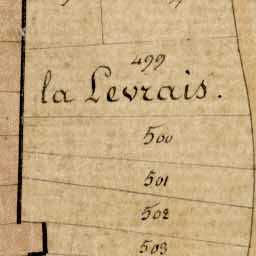 499
la Levrais.
500
501
502
503